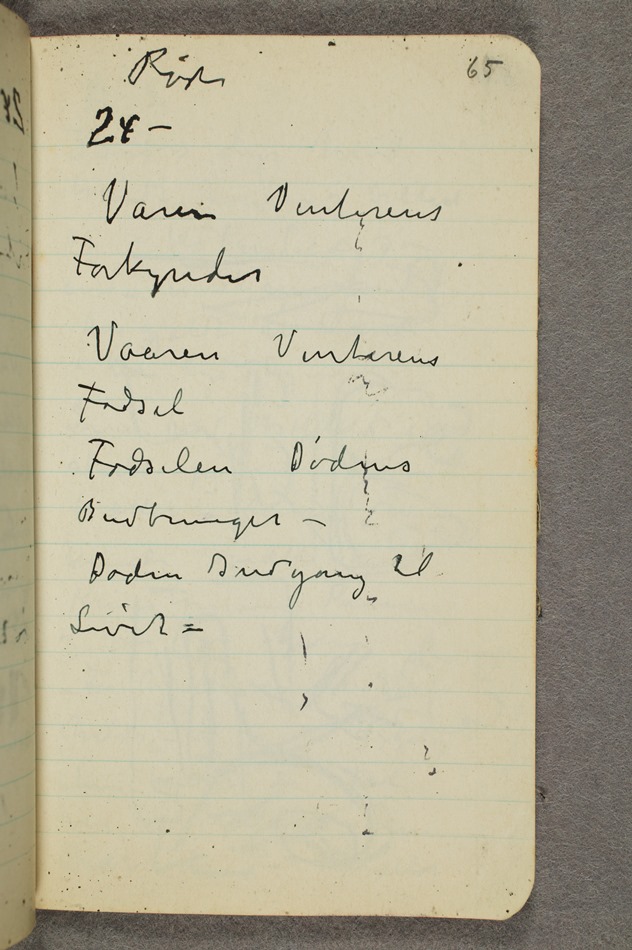 65
Rødt
24 –
Varen Vinterens
Forkynder
Vaaren Vinterens
Fødsel
Fødselen Dødens
Budbringer –
Døden Indgang til
Livet =